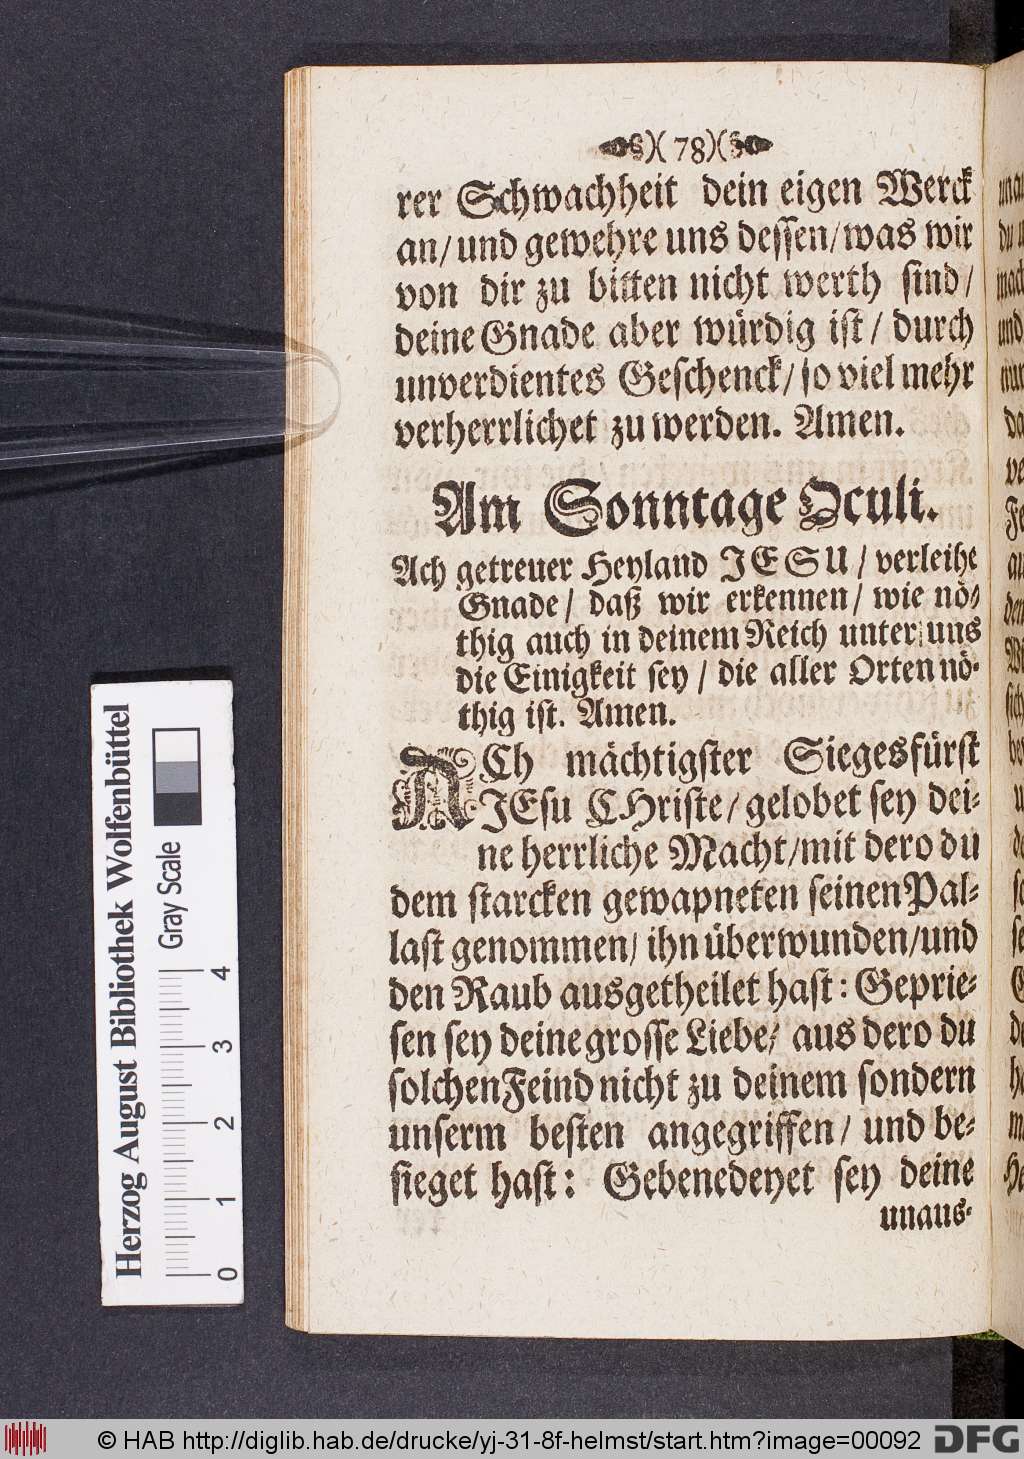 )( 78 )(
rer Schwachheit dein eigen Werck
an/ und gewehre uns dessen/ was wir
von dir zu bitten nicht werth sind/
deine Gnade aber würdig ist/ durch
unverdientes Geschenck/ so viel mehr
verherrlichet zu werden. Amen.
Am Sonntage Oculi.
Ach getreuer Heyland JESU/ verleihe
Gnade/ daß wir erkennen/ wie nö-
thig auch in deinem Reich unter uns
die Einigkeit sey/ die aller Orten nö-
thig ist. Amen.
ACh mächtigster Siegesfürst
JEsu CHriste/ gelobet sey dei-
ne herrliche Macht/ mit dero du
dem starcken gewapneten seinen Pal-
last genommen/ ihn überwunden/ und
den Raub ausgetheilet hast: Geprie-
sen sey deine grosse Liebe/ aus dero du
solchen Feind nicht zu deinem sondern
unserm besten angegriffen/ und be-
sieget hast: Gebenedeyet sey deine
unaus-
Herzog August Bibliothek Wolfenbüttel
Gray Scale
0 1 2 3 4
© HAB http://diglib.hab.de/drucke/yj-31-8f-helmst/start.htm?image=00092
DFG